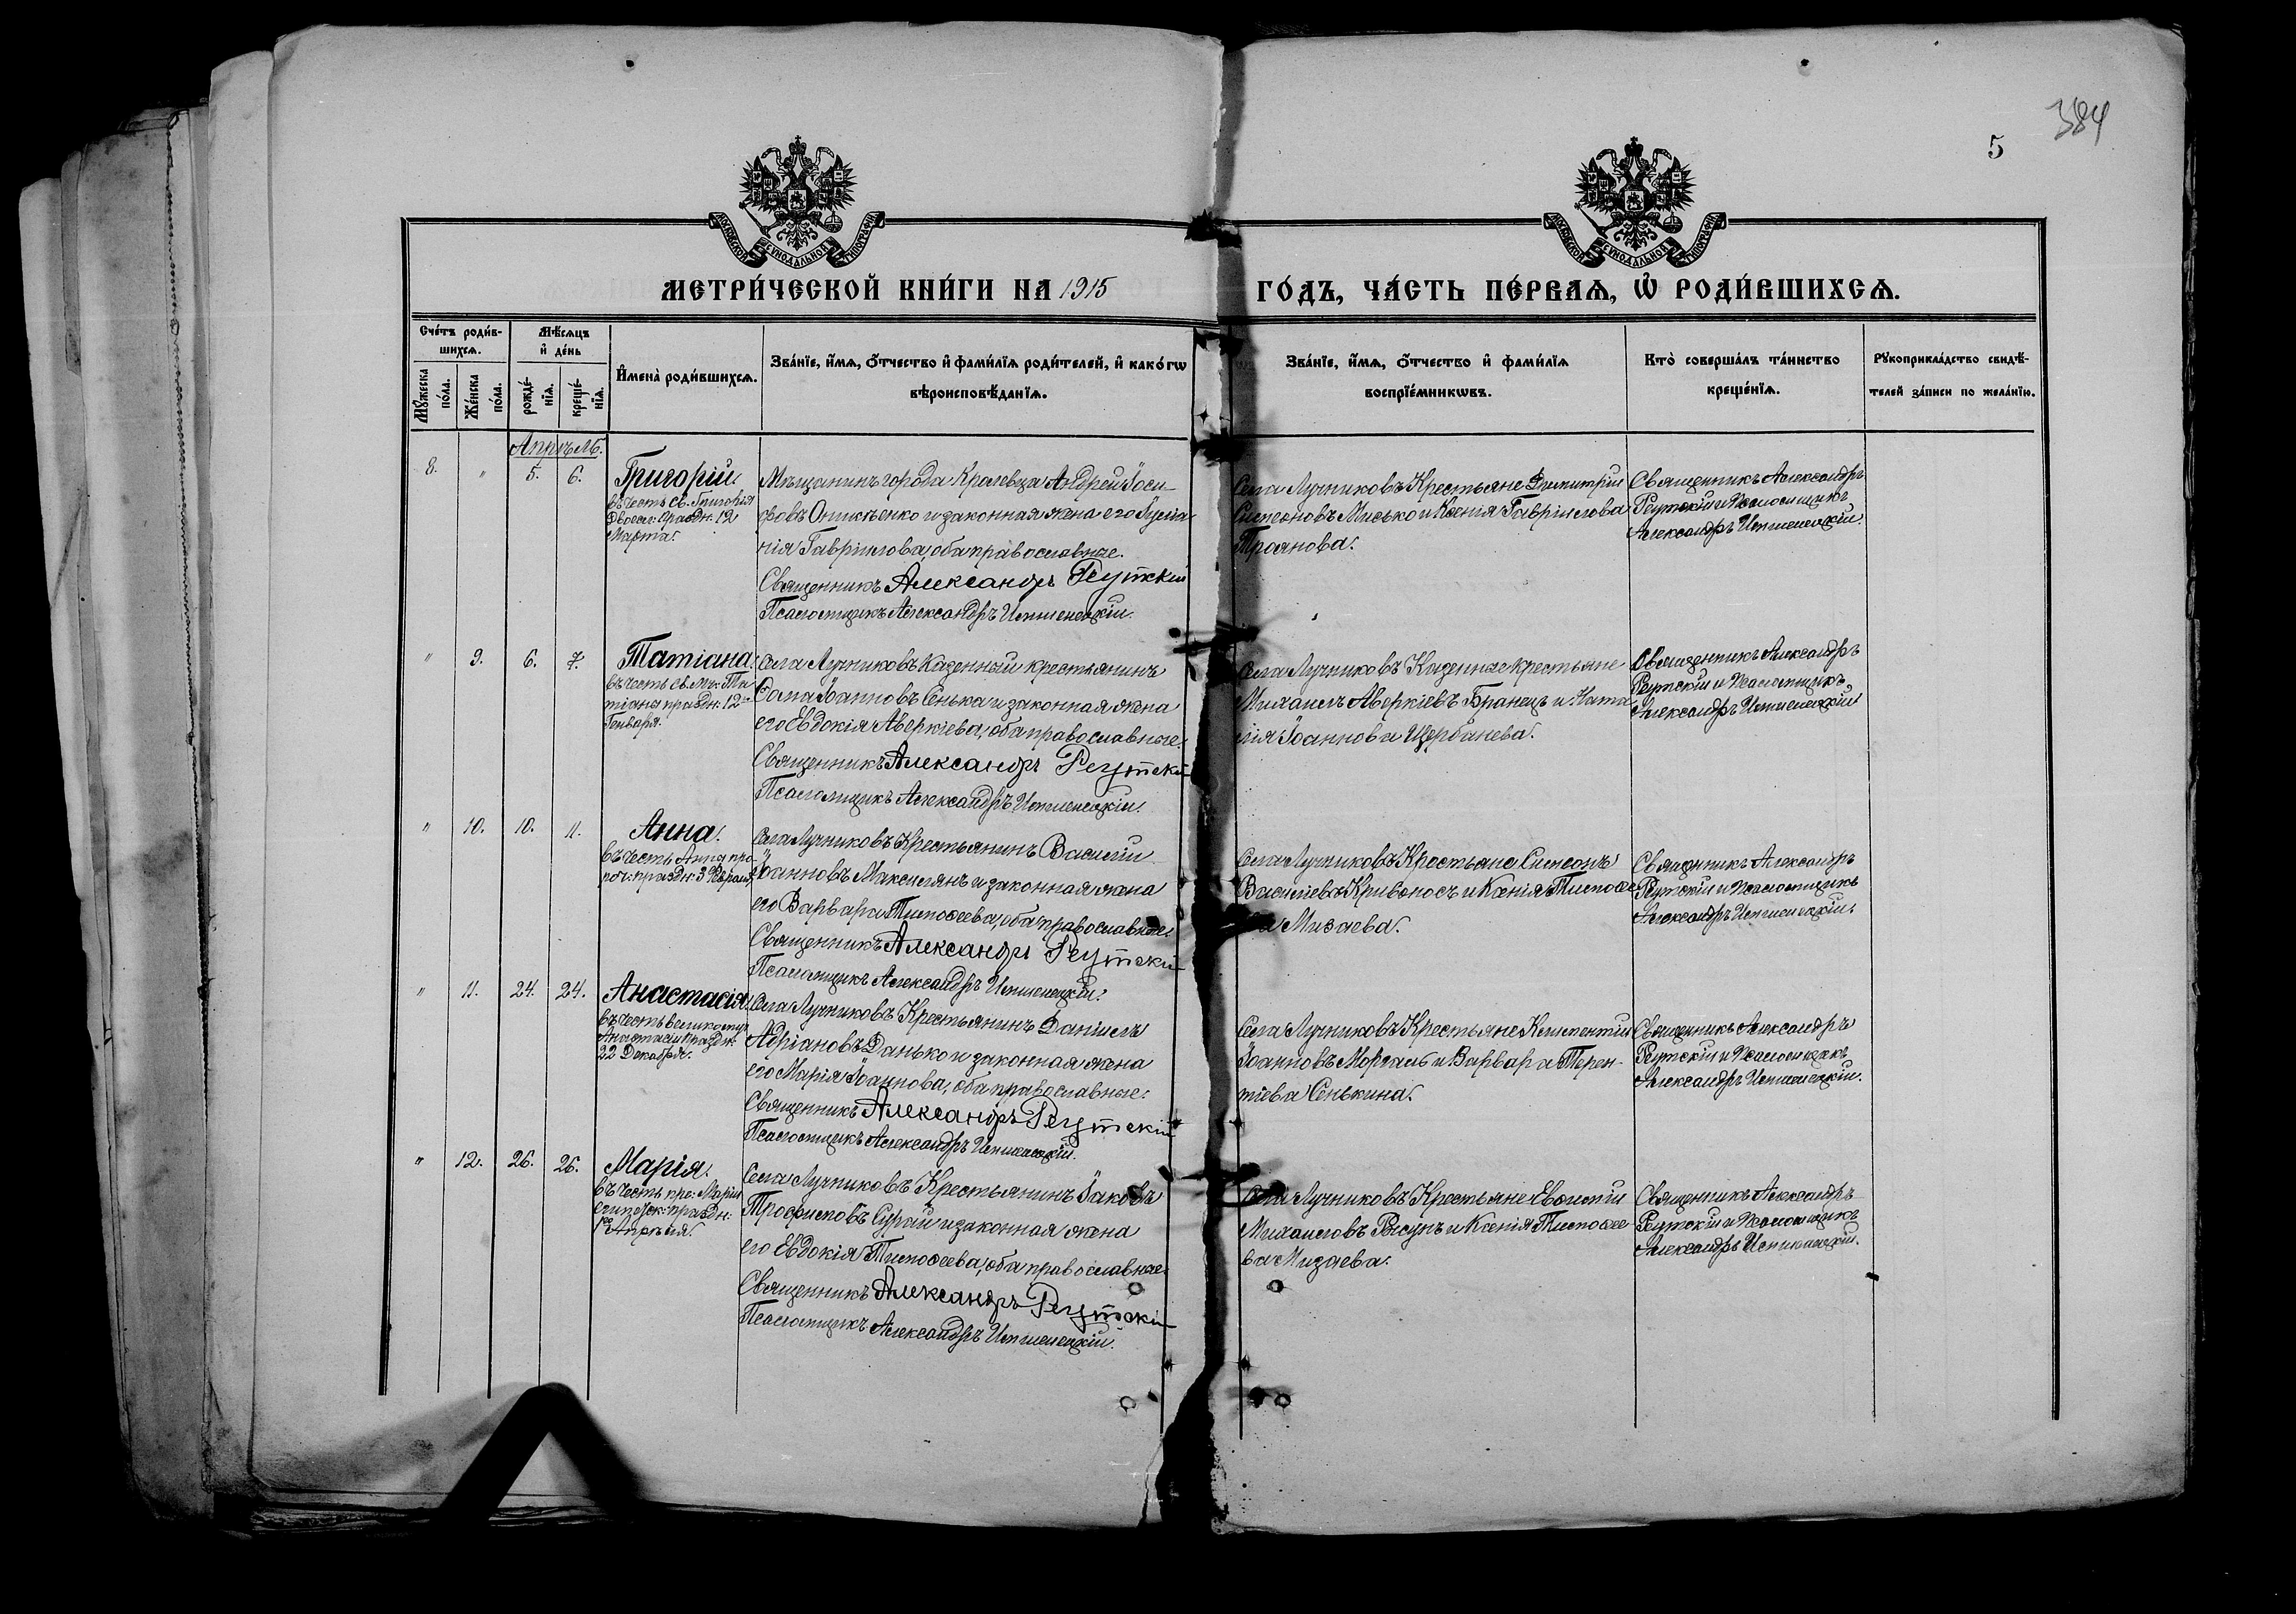 384
5
МОСКОВСКОЙ СѴНОДАЛЬНОЙ ТИПОГРАФІИ
МОСКОВСКОЙ СѴНОДАЛЬНОЙ ТИПОГРАФІИ
МЕТРИ́ЧЕСКОЙ КНИ́ГИ НА 1915
ГО́ДЪ, ЧА́СТЬ ПЕ́РВАѦ, Ѡ҆ РОДИ́ВШИХСѦ.
Сче́тъ роди́в-
шихсѧ.
Мꙋ́жеска по́ла.
Же́нска по́ла.
Мѣ́сѧцъ
и҆ де́нь
рожде́-
нїѧ.
креще́-
нїѧ.
И҆мена̀ роди́вшихсѧ.
Зва́нїе, и҆́мѧ, ѻ҆́тчество и҆ фами́лїѧ роди́телей, и҆ како́гѡ
вѣроисповѣ́данїѧ.
Зва́нїе, и҆́мѧ, ѻ҆́тчество и҆ фами́лїѧ
воспрїе́мникѡвъ.
Кто̀ соверша́лъ та́инство
креще́нїѧ.
Рꙋкоприкла́дство свидѣ́-
телей за́писи по жела́нїю.
Апрѣль.
8. " 5. 6.
Григорій
въ честь св. Григорія
Двоесл: праздн: 12
Марта.
Мѣщанинъ города Кролевца Андрей Іоси-
фовъ Оникѣенко и законная жена его
Гавріилова, оба православные.
Священникъ Александръ Реутскій
Псаломщикъ Александръ
Села Лучниковъ Крестьяне Димитрій
Симеоновъ Мисько и Ксенія Гавріилова
Троянова.
Священникъ Александръ
Реутскій и Псаломщикъ
Александръ
" 9. 6. 7.
Татіана.
въ честь св. муч. Та-
тіаны праздн: 12
Генваря.
Села Лучниковъ Казенный крестьянинъ
Ѳома Іоанновъ Сенька и законная жена
его Евдокія Аверкіева, оба православные.
Священникъ Александръ Реутскій
Псаломщикъ Александръ
Села Лучниковъ Казенные крестьяне
Михаилъ Аверкіевъ Бранецъ и Ната-
лія Іоаннова Щербанева.
Священникъ Александръ
Реутскій и Псаломщикъ
Александръ
" 10. 10. 11.
Анна.
въ честь Анны про-
роч: праздн: 3 Февраля
Села Лучниковъ Крестьянинъ Василій
Іоанновъ Максимянъ и законная жена
его Варвара Тимоѳеева, оба православные.
Священникъ Александръ Реутскій
Псаломщикъ Александръ
Села Лучниковъ Крестьяне Симеонъ
Василіевъ Кривоносъ и Ксенія Тимоѳее-
ва Мизаева.
Священникъ Александръ
Реутскій и Псаломщикъ
Александръ
" 11. 24. 24.
Анастасія.
въ честь великомуч
Анастасіи праздн:
22 Декабря.
Села Лучниковъ Крестьянинъ Даніилъ
Адріановъ Данько и законная жена
его Марія Іоаннова, оба православные.
Священникъ Александръ Реутскій
Псаломщикъ Александръ
Села Лучниковъ Крестьяне Климентій
Іоанновъ Моргаль и Варвара Терен-
тіева Сенькина.
Священникъ Александръ
Реутскій и Псаломщикъ
Александръ
" 12. 26. 26.
Марія.
въ честь пре: Маріи
египетск: праздн:
1го Апрѣля.
Села Лучниковъ Крестьянинъ Іаковъ
Трофимовъ Сурай и законная жена
его Евдокія Тимоѳеева, оба православные
Священникъ Александръ Реутскій
Псаломщикъ Александръ
Села Лучниковъ Крестьяне
Михаиловъ Рысунъ и Ксенія Тимоѳее-
ва Мизаева.
Священникъ Александръ
Реутскій и Псаломщикъ
Александръ